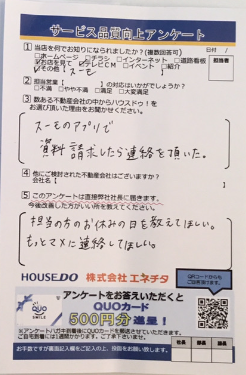 サービス品質向上アンケート
日付 /
① 当店を何でお知りになられましたか?(複数回答可)
□ホームページ □チラシ □インターネット □道路看板
☑お店を見て □テレビCM □イベント □紹介
☑その他( スーモ )
担当者
② 担当営業( )の対応はいかがでしょうか?
□不満 □やや不満 □満足 □大変満足
③ 数ある不動産会社の中からハウスドゥ!を
お選び頂いた理由をお聞かせください。
スーモのアプリで
資料請求したら連絡を頂いた。
④ 他にご検討された不動産会社はございますか?
会社名( )
⑤ このアンケートは直接弊社社長に届きます。
今後改善した方がいい所を教えてください。
担当の方のお休みの日を教えてほしい。
もっとマメに連絡してほしい。
HOUSE DO 株式会社エネチタ
QRコードからも
ご回答頂けます。
アンケートをお答えいただくと
QUOカード
500円分進呈!
QUO
SMILE
※アンケートハガキ到着後にQUOカードを郵送させていただきます。
ご自宅到着に1週間かかります。ご了承下さいませ。
お手数ですが裏面記入欄をご記入の上、投函をお願い致します。
社長
部長
店長